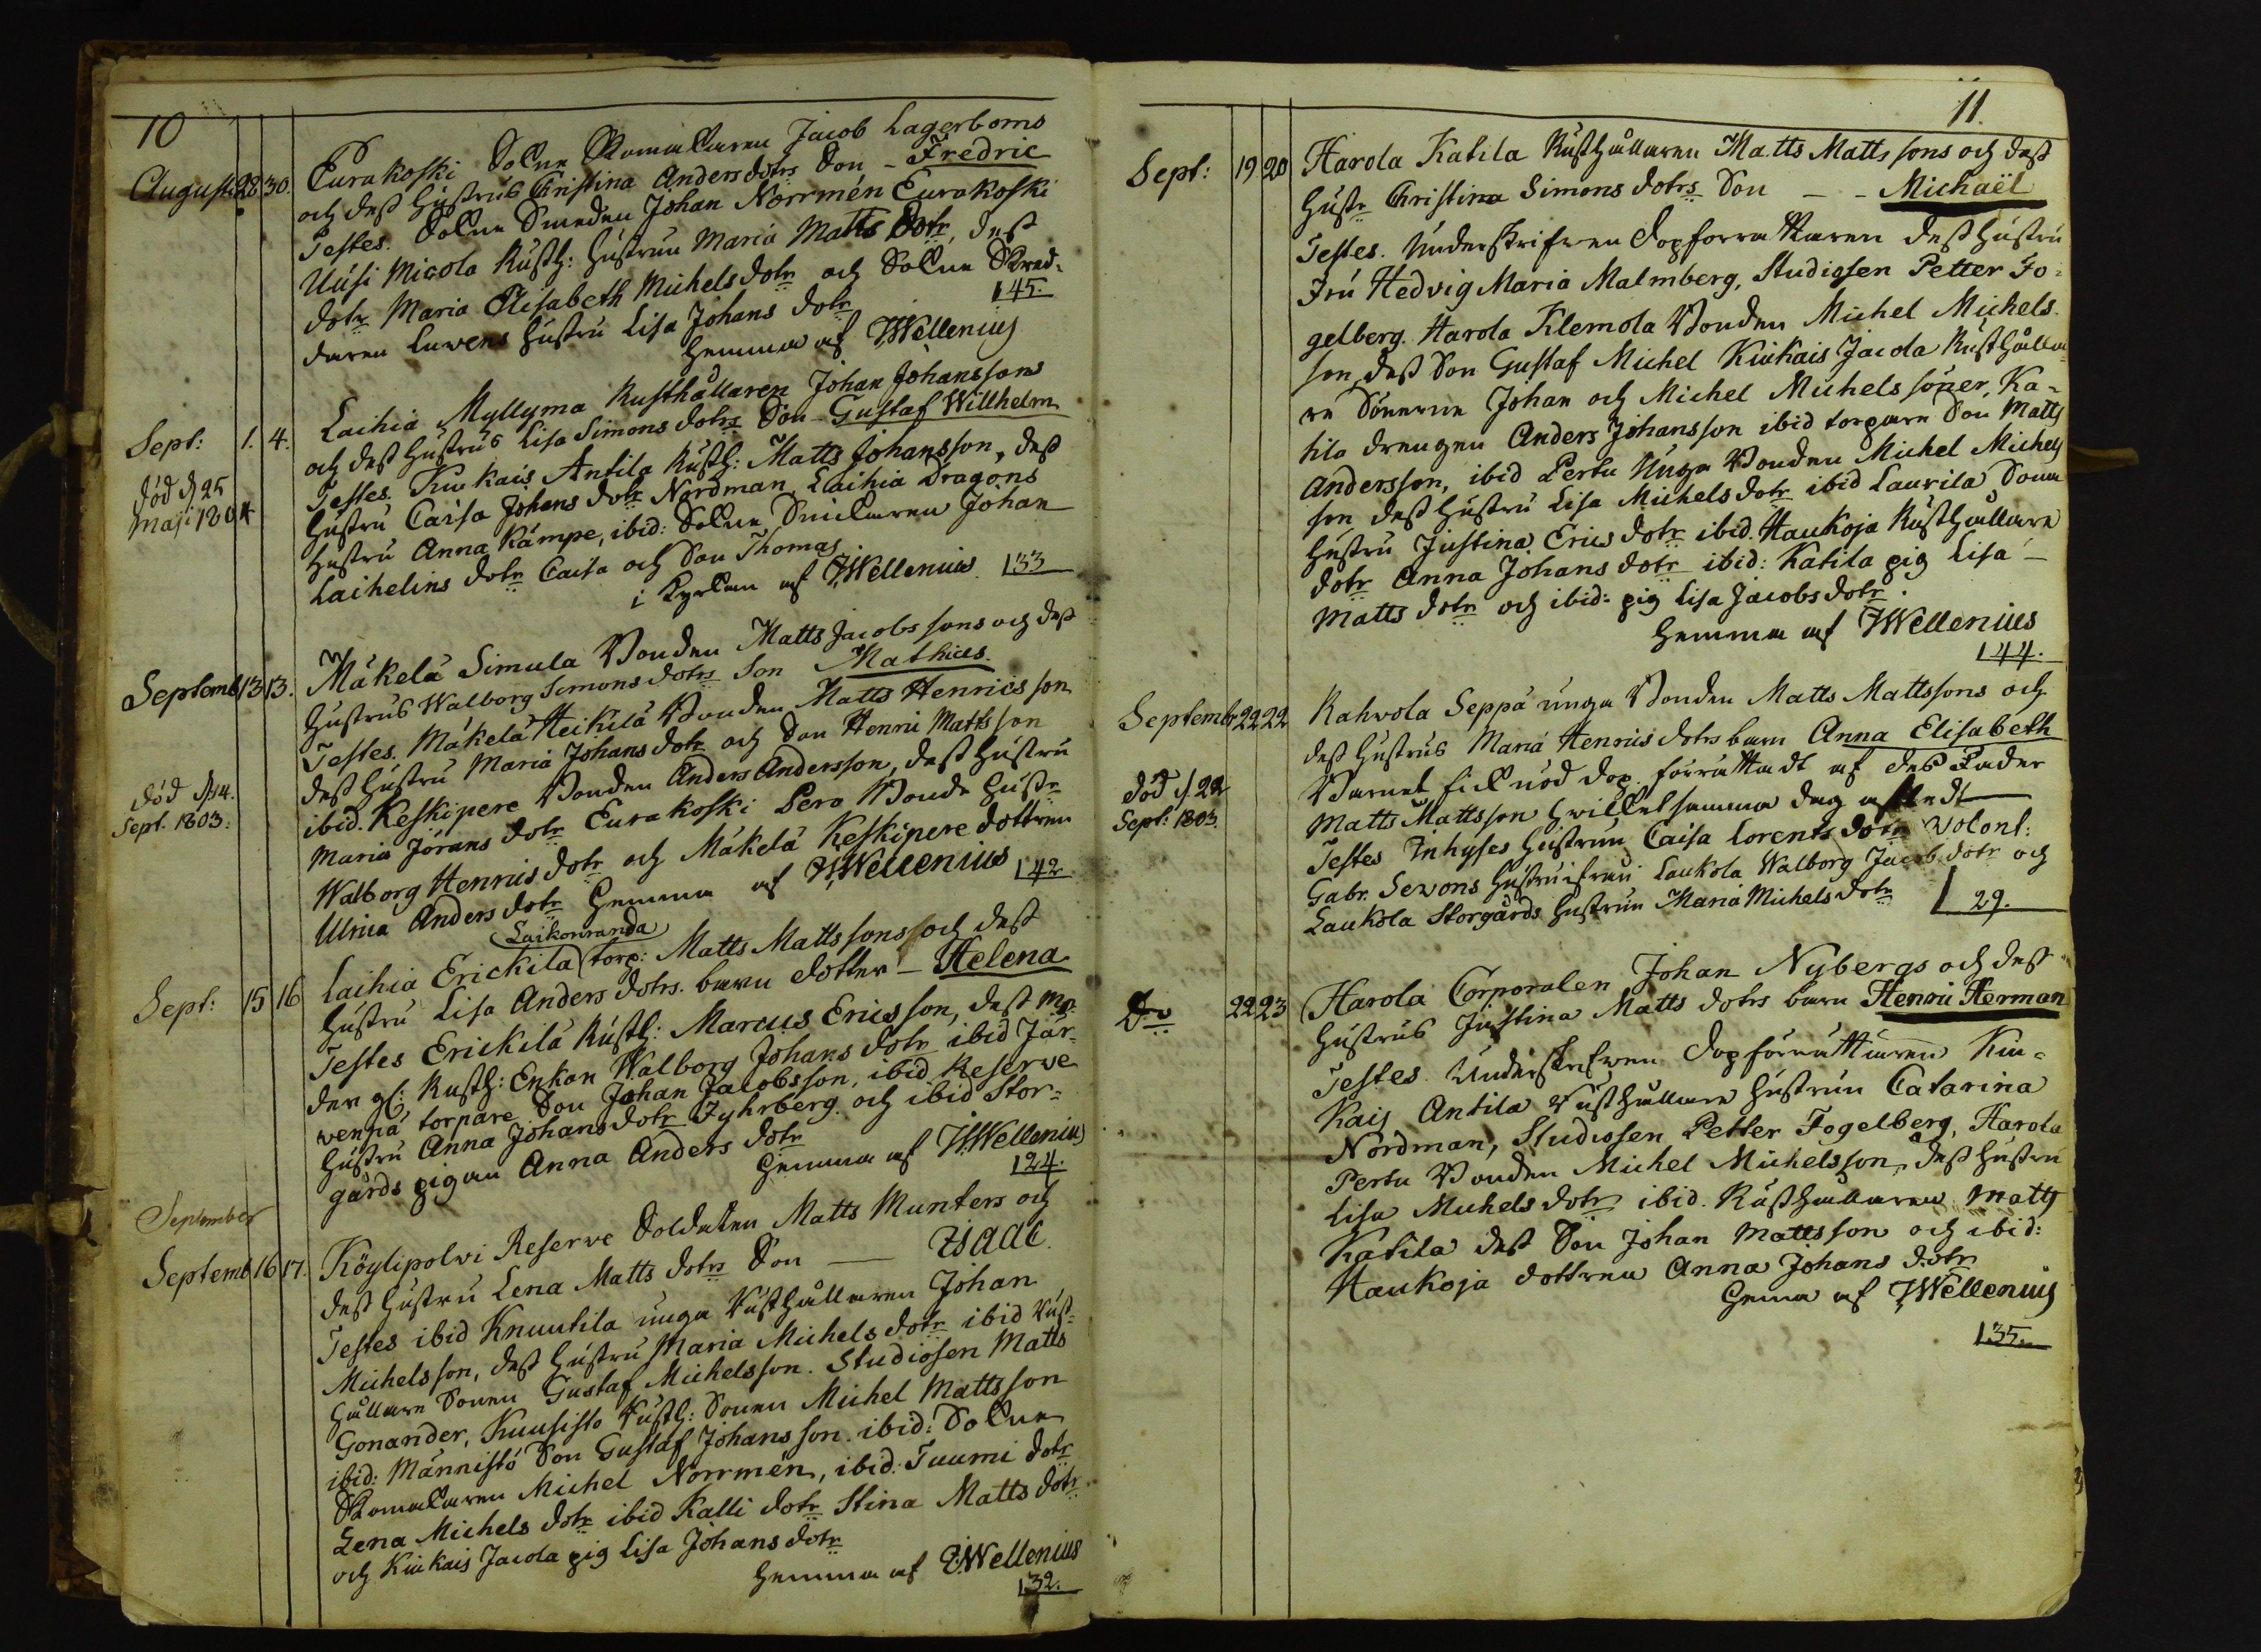 10
August: 28 30. Eurakoski Sokne Skomakaren Jacob Lagerboms
och dess Hustrus Christina Anders dotrs Son - Fredric
Testes. Sokne Smeden Johan Norrmén Eurakoski
Uusi Micola Rusth: Hustrun Maria Matts dotr, dess
dotr Maria Elisabeth Michels dotr och Sokne Skred-
daren Luvens Hustru Lisa Johans dotr
45
hemma af JWellenius
Sept: 1. 4. Laihia Myllyma Rusthållaren Johan Johanssons
och dess Hustrus Lisa Simons dotrs Son Gustaf Willhelm
död d 25
Maji 1804
Testes. Kiukais Antila Rusth: Matts Johansson, dess
Hustru Caisa Johans dotr Nordman, Laihia Dragons
Hustru Anna Kämpe, ibid: Sokne Snickaren Johan
Laihelins dotr Caisa och Son Thomas
i Kyrkan af JWellenius 33
Septemb 13 13. Mäkelä Simula Bonden Matts Jacobssons och dess
Hustrus Walborg Simons dotrs Son Mathias.
Testes. Mäkelä Heikilä Bonden Matts Henricsson
dess Hustru Maria Johans dotr och Son Henric Mattsson
död d 14.
Sept. 1803:
ibid. Keskipere Bonden Anders Andersson, dess Hustru
Maria Jörans dotr Eurakoski Pero Bonde Hustr
Walborg Henrics dotr och Mäkelä Keskipere dottren
Ulrica Anders dotr hemma af JWellenius 42
Laikonranda
Sept: 15 16 Laihia Erickila torp: Matts Mattssons och dess
Hustru Lisa Anders dotrs. barn dotter - Helena
Testes Erickilä Rusth: Marcus Ericsson, dess Mo-
der gl: Rusth: Enkan Walborg Johans dotr ibid Jär-
wenpä torpare Son Johan Jacobsson, ibid Reserwe
Hustru Anna Johans dotr Fyhrberg. och ibid Stor-
gårds pigan Anna Anders dotr
hemma af JWellenius
24.
September
Septemb 16 17. Köylipolwi Reserve Soldaten Matts Munters och
dess Hustru Lena Matts dotrs Son — Isaac.
Testes ibid Knuutila unga Rusthållaren Johan
Michelsson, dess Hustru Maria Michels dotr ibid Rust-
hållare Sonen Gustaf Michelsson. Studiosen Matts
Gonander, Kuusisto Rusth: Sonen Michel Mattsson
ibid: Männistö Son Gustaf Johansson. ibid: Sokne
Skomakaren Michel Norrmén, ibid: Tuumi dotr
Lena Michels dotr ibid Kalli dotr Stina Matts dotr
och Kiukais Jacola pig Lisa Johans dotr
hemma af JWellenius
32.
11.
Sept: 19 20 Harola Katila Rusthållaren Matts Mattssons och dess
Hustr Christina Simons dotrs Son — - Michaël
Testes. Underskrifven dopforrättaren dess Hustru
Fru Hedvig Maria Malmberg, Studiosen Petter Fo-
gelberg. Harola Klemola Bonden Michel Michels
son, dess Son Gustaf Michel Kiukais Jacola Rusthålla-
re Sönerne Johan och Michel Michels söner, Ka-
tila drengen Anders Johansson ibid torpare Son Matts
Andersson, ibid Pertu Unga Bonden Michel Michels
son, dess Hustru Lisa Michels dotr ibid Laurila Sonn
Hustru Justina Erics dotr ibid. Haukoja Rusthållare
dotr Anna Johans dotr ibid: Katila pig Lisa —
Matts dotr och ibid: pig Lisa Jacobs dotr.
hemma af JWellenius
44.
Septembr 22 22 Kahvola Seppä unga Bonden Matts Mattssons och
dess Hustrus Maria Henrics dotrs barn Anna Elisabeth
Barnet fick nöd dop. förrättadt af dess Fader
död d 22
Sept: 1803.
Matts Mattsson hvilket samma dag afledt
Testes Inhyses Hustrun Caisa Lorents dotr Volont:
Gabr. Sevons Hustru ifrån Laukola Walborg Jacobs dotr och
Laukola Storgårds Hustrun Maria Michels dotr 29.
Do 22 23 Harola Corporalen Johan Nybergs och dess
Hustrus Justina Matts dotrs barn Henric Herman
Testes. Underskrifven dopförrättaren Kiu-
kais Antila Rusthållare Hustrun Catarina
Nordman, Studiosen Petter Fogelberg, Harola
Pertu Bonden Michel Michelsson, dess Hustru
Lisa Michels dotr ibid. Rusthållaren Matts
Katila dess Son Johan Mattsson och ibid:
Haukoja dottren Anna Johans dotr
Hema af JWellenius
35.